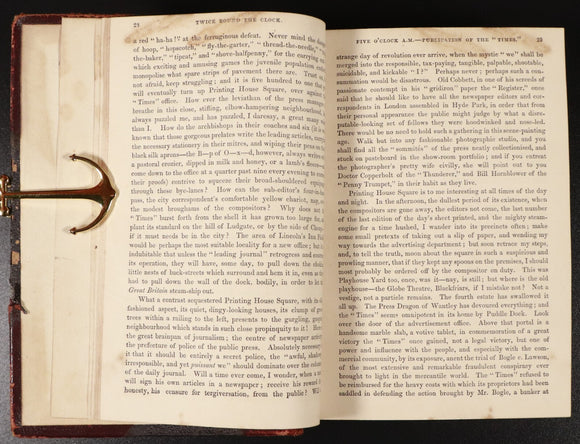 24 TWICE ROUND THE CLOCK.
a red "ha-ha!" at the ferruginous defeat. Never mind the
of hoop, "hopscotch," "fly-the-garter," "thread-the-needle,"
the-baker," "tipcat," and "shove-halfpenny," for the carrying
which exciting and amusing games the juvenile population
monopolise what spare strips of pavement there are. Trust
not afraid, keep struggling; and it is five hundred to one that
will eventually turn up Printing House Square, over against
"Times" office. How ever the leviathan of the press manages
breathe in this close, stifling, elbow-hampering neighbourhood,
always puzzled me, and has puzzled, I daresay, a great many
than I. How do the archbishops in their coaches and six (it is
known that those gorgeous prelates write the leading articles,
the necessary stationery in their mitres, and wiping their pens on
black silk aprons—the B—p of O—x—d, however, always writing
a pastoral crozier, dipped in milk and honey, or a lamb's
come down to the office at a quarter past nine every evening to
their proofs) contrive to squeeze their broad-shouldered equipages
through these bye-lanes? How can the sub-editor's four-in-hand
pass, the city correspondent's comfortable yellow chariot, nay,
the modest broughams of the compositors? Why does not
"Times" burst forth from the shell it has grown too large for,
plant its standard on the hill of Ludgate, or by the side of
if it must needs be in the city? The area of Lincoln's Inn
would be perhaps the most suitable locality for a new office; but
indubitable unless the "leading journal" retrogress and
its operation, they will have, some day, to pull down the
little nests of back-streets which surround and hem it in, even as
had to pull down the wall of the dock, bodily, in order to let
Great Britain steam-ship out.
What a contrast sequestered Printing House Square, with its
fashioned aspect, its quiet, dingy-looking houses, its clump of
trees within a railing to the left, presents to the gurgling,
neighbourhood which stands in such close propinquity to it! Here
the great brainpan of journalism; the centre of newspaper
the prefecture of police of the public press. Absolutely necessary
it that it should be entirely a secret police, the "awful,
irresponsible, and yet puissant we" should dominate over the
of the daily journal. Will a time ever come, I wonder, when a
will sign his own articles in a newspaper; receive his reward
honesty, his censure for tergiversation, from the public?
FIVE O'CLOCK A.M.—PUBLICATION OF THE "TIMES." 25
strange day of revolution ever arrive, when the mystic "we" shall be
merged into the responsible, tax-paying, tangible, palpable, shootable,
suicidable, and kickable "I?" Perhaps never; perhaps such a con-
summation would be disastrous. Old Cobbett, in one of his screeds of
passionate contempt in his "gridiron" paper the "Register," once
said that he should like to have all the newspaper editors and cor-
respondents in London assembled in Hyde Park, in order that from
their personal appearance the public might judge by what a disre-
putable-looking set of fellows they were hoodwinked and nose-led.
There would be no need to hold such a gathering in this scene-painting
age. Walk but into any fashionable photographic studio, and you
shall find all the "sommités" of the press neatly collectionised, and
stuck on pasteboard in the show-room portfolio; and if you entreat
the photographer's pretty wife civilly, she will point out to you
Doctor Copperbolt of the "Thunderer," and Bill Hornblower of the
"Penny Trumpet," in their habit as they live.
Printing House Square is to me interesting at all times of the day
and night. In the afternoon, the dullest period of its existence, when
the compositors are gone away, the editors not come, the last number
of the last edition of the day's sheet printed, and the mighty steam-
engine for a time hushed, I wander into its precincts often; make
some small pretexts of taking out a slip of paper, and wending my
way towards the advertisement department; but soon retrace my steps,
and, to tell the truth, moon about the square in such a suspicious and
prowling manner, that if they kept any spoons on the premises, I should
most probably be ordered off by the compositor on duty. This was
Playhouse Yard too, once, was it—nay, is still; but where is the old
playhouse—the Globe Theatre, Blackfriars, if I mistake not? Not a
vestige, not a particle remains. The fourth estate has swallowed it
all up. The Press Dragon of Wantley has devoured everything; and
the "Times" seems omnipotent in its home by Puddle Dock. Look
over the door of the advertisement office. Above that portal is a
handsome marble slab, a votive tablet, in commemoration of a great
victory the "Times" once gained, not a legal victory, but one of
power and influence with the people, and especially with the com-
mercial community, by its exposure, anent the trial of Bogle v. Lawson,
of the most extensive and remarkable fraudulent conspiracy ever
brought to light in the mercantile world. The "Times" refused to
be reimbursed for the heavy costs with which its proprietors had been
saddled in defending the action brought by Mr. Bogle, a banker at